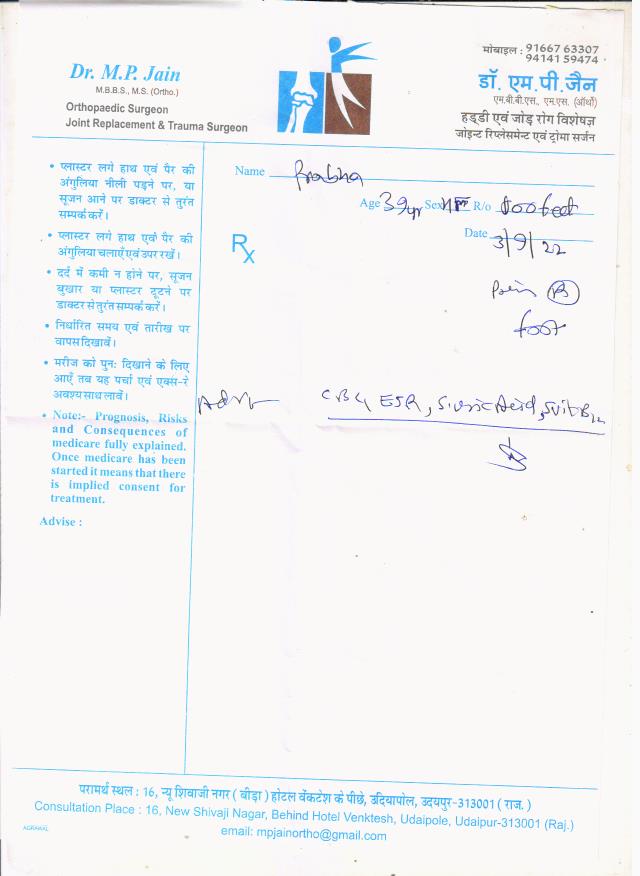 Dr. M.P. Jain
M.B.B.S., M.S. (Ortho.)
Orthopaedic Surgeon
Joint Replacement & Trauma Surgeon
मोबाइल : 91667 63307
94141 59474
डॉ. एम.पी.जैन
एम.बी.बी.एस., एम.एस. (ऑर्थो)
हड्डी एवं जोड़ रोग विशेषज्ञ
जोइन्ट रिप्लेसमेन्ट एवं ट्रोमा सर्जन
• प्लास्टर लगे हाथ एवं पैर की
अंगुलिया नीली पड़ने पर, या
सूजन आने पर डाक्टर से तुरंत
सम्पर्क करें।
• प्लास्टर लगे हाथ एवं पैर की
अंगुलियां चलाएँ एवं उपर रखें।
• दर्द में कमी न होने पर, सूजन
बुखार या प्लास्टर टूटने पर
डाक्टर से तुरंत सम्पर्क करें।
• निर्धारित समय एवं तारीख पर
वापस दिखावें।
• मरीज को पुनः दिखाने के लिए
आएँ तब यह पर्चा एवं एक्स-रे
अवश्य साथ लावें।
• Note:- Prognosis, Risks
and Consequences of
medicare fully explained.
Once medicare has been
started it means that there
is implied consent for
treatment.
Advise :
Name Prabha
Age 39yr Sex R/o
Date 3/9/22
Rx
Pain (B)
foot
Adv CBC, ESR, S. Uric Acid, S Vit B12
परामर्थ स्थल : 16, न्यू शिवाजी नगर ( बीड़ा ) होटल वेंकटेश के पीछे, उदियापोल, उदयपुर-313001 ( राज. )
Consultation Place : 16, New Shivaji Nagar, Behind Hotel Venktesh, Udaipole, Udaipur-313001 (Raj.)
email: mpjainortho@gmail.com
AGRAWAL